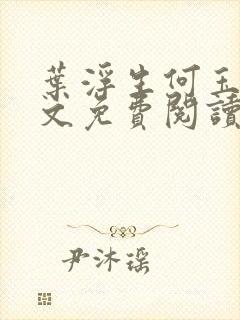 葉浮生何玉
文免費閱讀
尹沐瑶